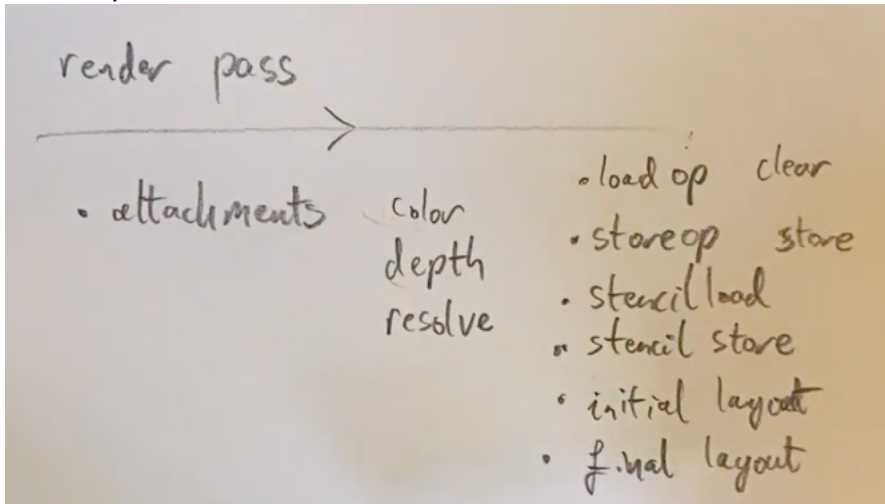 render pass
• attachments
color
depth
resolve
• load op clear
• storeop store
• stencil load
• stencil store
• initial layout
• final layout